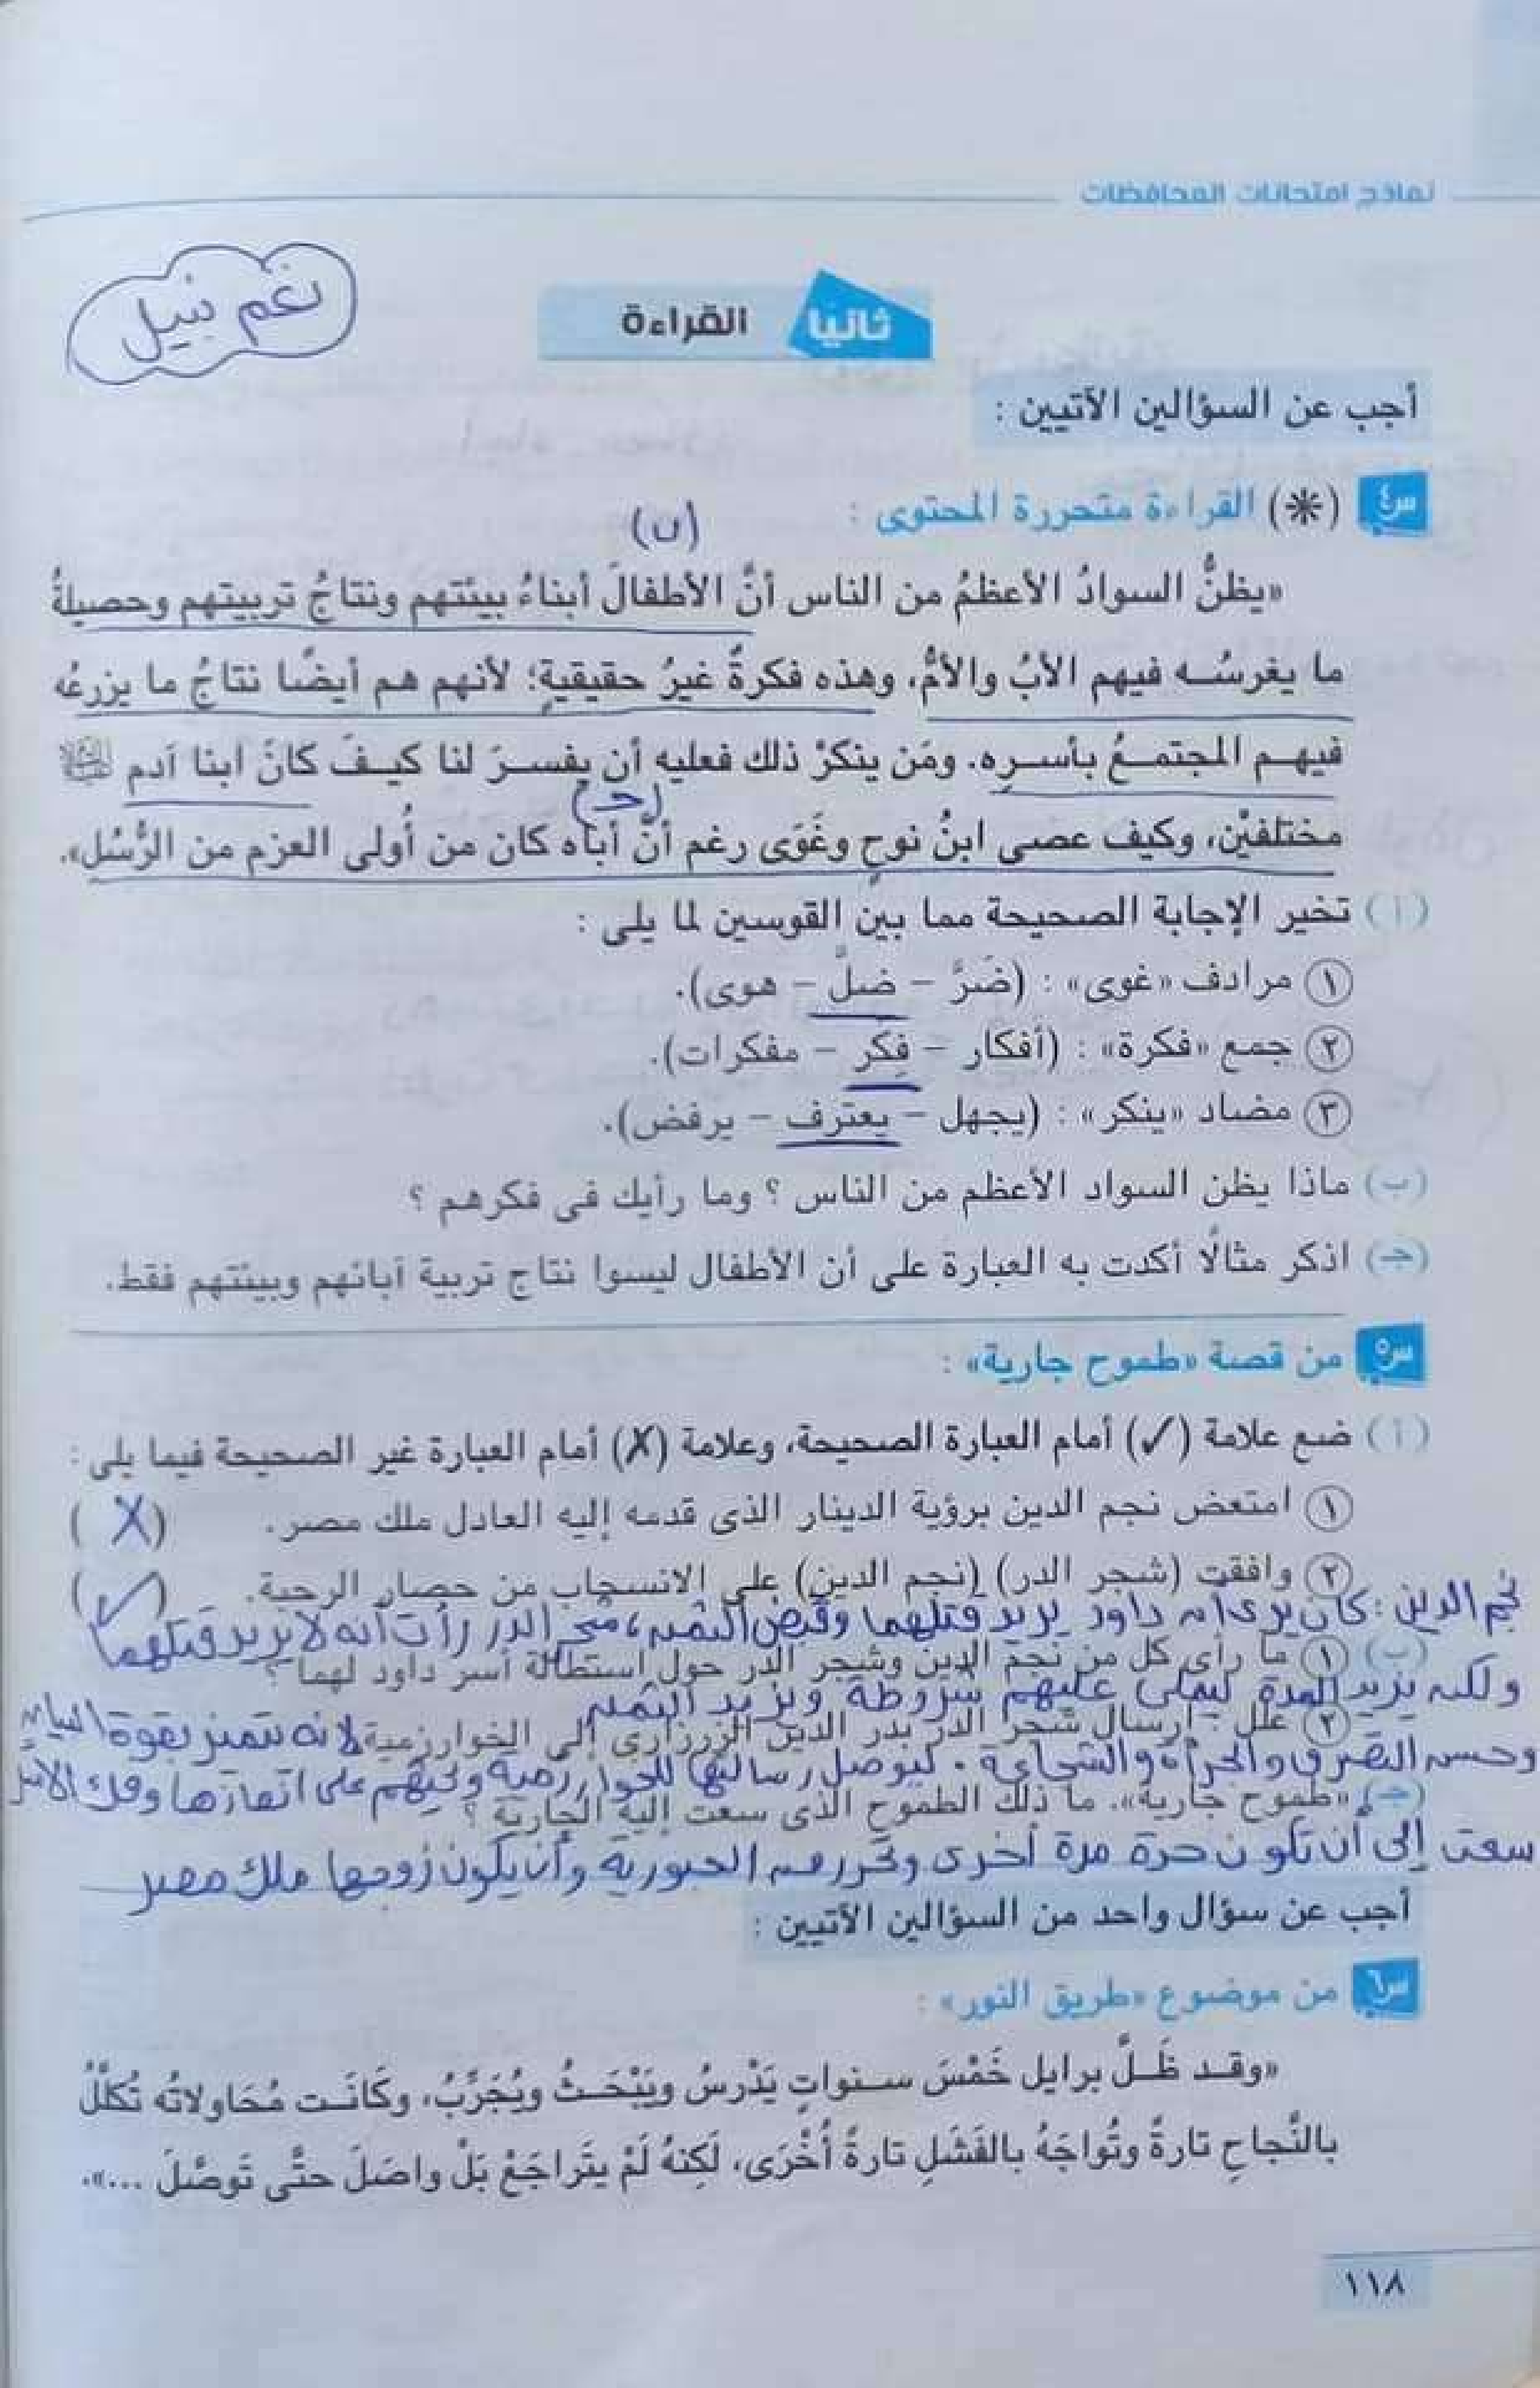 نماذج امتحانات المحافظات
نغم نبيل
ثانيا القراءة
أجب عن السؤالين الآتيين :
س٤ (*) القراءة متحررة المحتوى :
(ب)
«يظنُّ السوادُ الأعظمُ من الناس أنَّ الأطفالَ أبناءُ بيئتهم ونتاجُ تربيتهم وحصيلةُ
ما يغرسُه فيهم الأبُ والأمُّ، وهذه فكرةٌ غيرُ حقيقيةٍ؛ لأنهم هم أيضًا نتاجُ ما يزرعُه
فيهم المجتمعُ بأسرِه. ومَن ينكرْ ذلك فعليه أن يفسرَ لنا كيفَ كانَ ابنا آدم عليه السلام
(جـ)
مختلفيْن، وكيف عصى ابنُ نوحٍ وغَوَى رغم أنَّ أباه كان من أُولى العزم من الرُّسُل».
(أ) تخير الإجابة الصحيحة مما بين القوسين لما يلى :
١ مرادف «غوى» : (ضَرَّ – ضلَّ – هوى).
٢ جمع «فكرة» : (أفكار – فِكَر – مفكرات).
٣ مضاد «ينكر» : (يجهل – يعترف – يرفض).
(ب) ماذا يظن السواد الأعظم من الناس ؟ وما رأيك فى فكرهم ؟
(جـ) اذكر مثالًا أكدت به العبارة على أن الأطفال ليسوا نتاج تربية آبائهم وبيئتهم فقط.
س٥ من قصة «طموح جارية» :
(أ) ضع علامة (✓) أمام العبارة الصحيحة، وعلامة (✗) أمام العبارة غير الصحيحة فيما يلى :
١ امتعض نجم الدين برؤية الدينار الذى قدمه إليه العادل ملك مصر. (X)
٢ وافقت (شجر الدر) (نجم الدين) على الانسحاب من حصار الرحبة. (✓)
نجم الدين : كان يرى أن داود يريد قتلهما وقبض الثمن، شجر الدر رأت أنه لا يريد قتلهما
(ب) ١ ما رأى كل من نجم الدين وشجر الدر حول استطالة أسر داود لهما ؟
ولكنه يزيد المدة ليملى عليهم شروطه ويزيد الثمن
٢ علل : إرسال شجر الدر بدر الدين الزرزارى إلى الخوارزمية. لأنه يتميز بقوة البيان
وحسن التصرف والجرأة والشجاعة. ليوصل رسالتها للخوارزمية ويحثهم على انقاذها وفك الأسر
(جـ) «طموح جارية». ما ذلك الطموح الذى سعت إليه الجارية ؟
سعت إلى أن تكون حرة مرة أخرى وتحررهم العبودية وأن يكون زوجها ملك مصر
أجب عن سؤال واحد من السؤالين الآتيين :
س٦ من موضوع «طريق النور» :
«وقد ظَلَّ برايل خَمْسَ سنواتٍ يَدْرسُ ويَبْحَثُ ويُجَرِّبُ، وكَانَت مُحَاولاتُه تُكلَّلُ
بالنَّجاحِ تارةً وتُواجَهُ بالفَشَلِ تارةً أُخْرَى، لَكِنهُ لَمْ يتَراجَعْ بَلْ واصَلَ حتَّى تَوصَّلَ ...».
١١٨